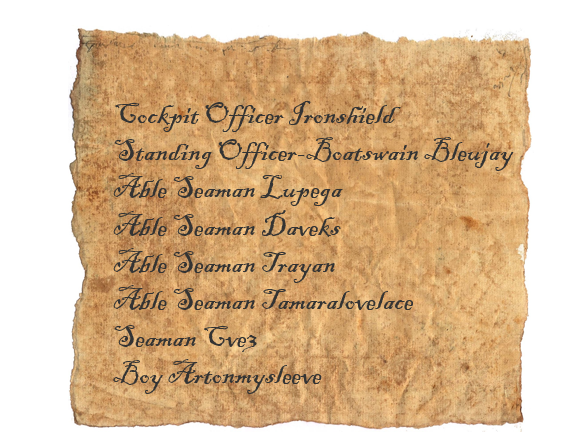 Cockpit Officer Ironshield
Standing Officer-Boatswain Bleujay
Able Seaman Lupega
Able Seaman Daveks
Able Seaman Trayan
Able Seaman Tamaralovelace
Seaman Cve3
Boy Artonmysleeve